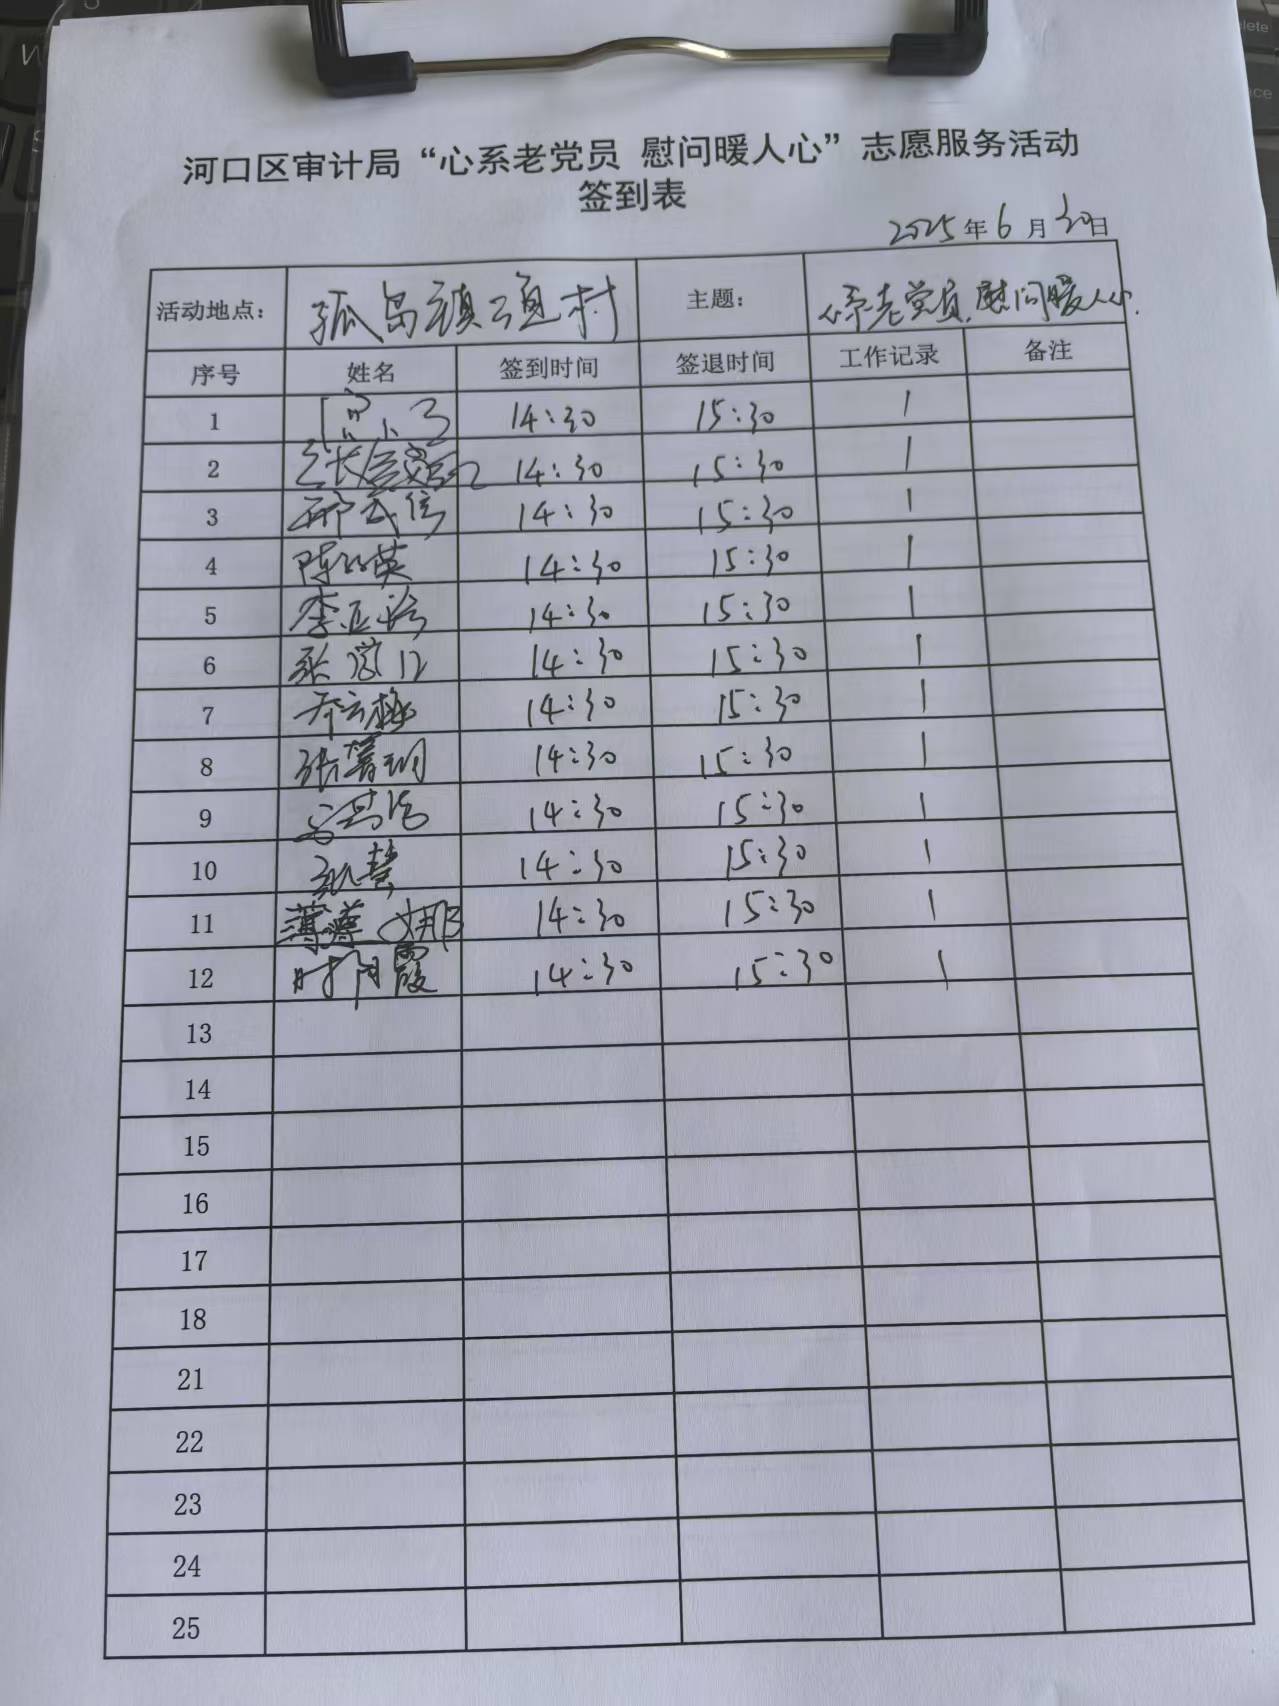 河口区审计局“心系老党员 慰问暖人心”志愿服务活动
签到表
2025年6月30日
活动地点： 孤岛镇 村 主题： 心系老党员，慰问暖人心
序号 姓名 签到时间 签退时间 工作记录 备注
1 14:30 15:30 1
2 14:30 15:30 1
3 14:30 15:30 1
4 陈 英 14:30 15:30 1
5 李 14:30 15:30 1
6 张 14:30 15:30 1
7 14:30 15:30 1
8 张 14:30 15:30 1
9 14:30 15:30 1
10 慧 14:30 15:30 1
11 薄 娜 14:30 15:30 1
12 时 霞 14:30 15:30 1
13
14
15
16
17
18
21
22
23
24
25